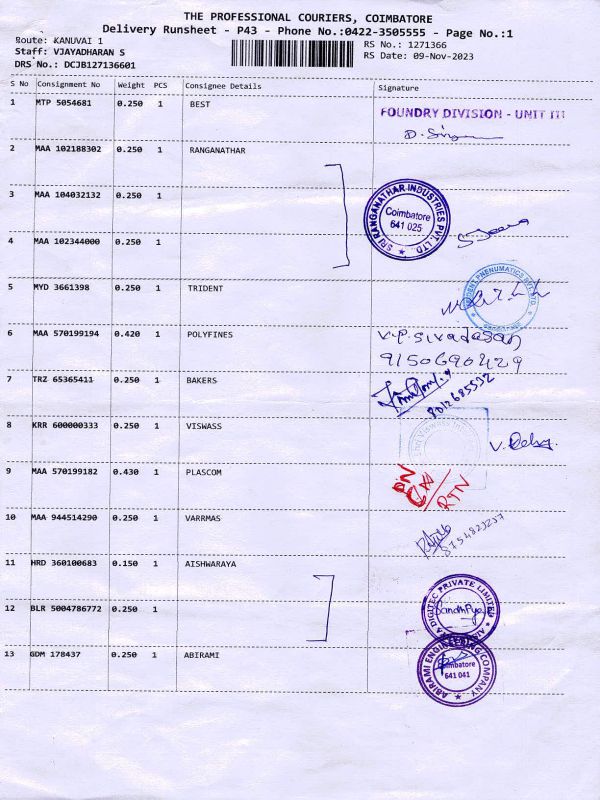 THE PROFESSIONAL COURIERS, COIMBATORE
Delivery Runsheet - P43 - Phone No.:0422-3505555 - Page No.:1
Route: KANUVAI 1
RS No.: 1271366
Staff: VJAYADHARAN S
RS Date: 09-Nov-2023
DRS No.: DCJB127136601
S No Consignment No Weight PCS Consignee Details Signature
1 MTP 5054681 0.250 1 BEST
FOUNDRY DIVISION - UNIT III
2 MAA 102188302 0.250 1 RANGANATHAR
3 MAA 104032132 0.250 1
SRI RANGANATHAR INDUSTRIES PVT. LTD.,
Coimbatore
641 025
4 MAA 102344000 0.250 1
5 MYD 3661398 0.250 1 TRIDENT
6 MAA 570199194 0.420 1 POLYFINES
V.P. Sivadasan
9150690429
7 TRZ 65365411 0.250 1 BAKERS
8012685592
8 KRR 600000333 0.250 1 VISWASS
9 MAA 570199182 0.430 1 PLASCOM
RTN
10 MAA 944514290 0.250 1 VARRMAS
11 HRD 360100683 0.150 1 AISHWARAYA
DIGITEC PRIVATE LIMITED
12 BLR 5004786772 0.250 1
13 GDM 178437 0.250 1 ABIRAMI
ABIRAMI ENGINEERING COMPANY
Coimbatore
641 041